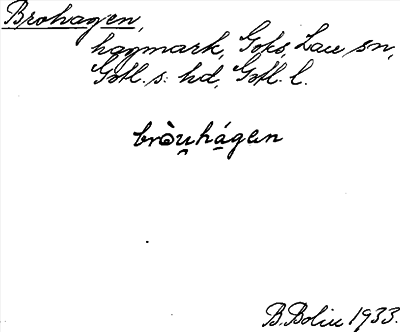 Brohagen,
hagmark, Goks, Lau sn,
Gotl. s: hd, Gotl. l.
bròu̯hágen
B. Bolin 1933.